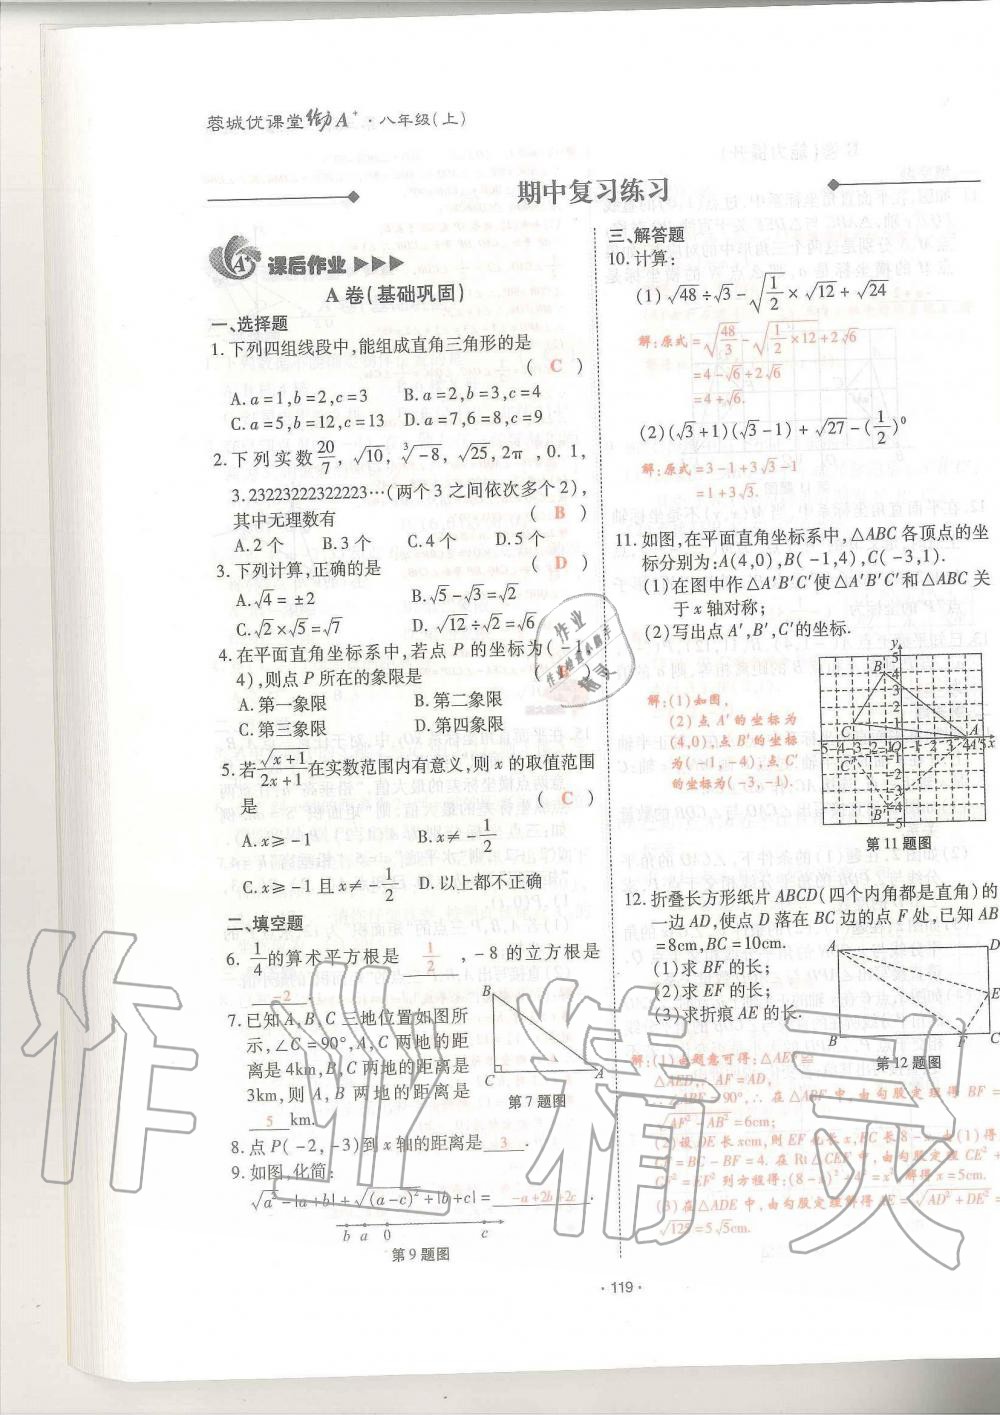 蓉城优课堂 A+·八年级(上)
期中复习练习
A+ 课后作业
A卷(基础巩固)
一、选择题
1.下列四组线段中,能组成直角三角形的是
( C )
A.a=1,b=2,c=3 B.a=2,b=3,c=4
C.a=5,b=12,c=13 D.a=7,6=8,c=9
2.下列实数20/7,√10,³√-8,√25,2π,0.1,
3.23223222322223…(两个3之间依次多个2),
其中无理数有 ( B )
A.2个 B.3个 C.4个 D.5个
3.下列计算,正确的是 ( D )
A.√4=±2 B.√5-√3=√2
C.√2×√5=√7 D.√12÷√2=√6
4.在平面直角坐标系中,若点P的坐标为(-1,
4),则点P所在的象限是 ( B )
A.第一象限 B.第二象限
C.第三象限 D.第四象限
5.若√x+1/2x+1在实数范围内有意义,则x的取值范围
是 ( C )
A.x≥-1 B.x≠-1/2
C.x≥-1且x≠-1/2 D.以上都不正确
二、填空题
6.1/4的算术平方根是 1/2 ,-8的立方根是
-2
7.已知A,B,C三地位置如图所
示,∠C=90°,A,C两地的距
离是4km,B,C两地的距离是
3km,则A,B两地的距离是
5 km.
B
C
A
第7题图
8.点P(-2,-3)到x轴的距离是 3 .
9.如图,化简:
√a²-|a+b|+√(a-c)²+|b+c|= -a+2b+2c .
b a 0 c
第9题图
三、解答题
10.计算:
(1)√48÷√3-√1/2×√12+√24
解:原式=√48/3-√1/2×12+2√6
=4-√6+2√6
=4+√6.
(2)(√3+1)(√3-1)+√27-(1/2)⁰
解:原式=3-1+3√3-1
=1+3√3.
11.如图,在平面直角坐标系中,△ABC各顶点的坐
标分别为:A(4,0),B(-1,4),C(-3,1).
(1)在图中作△A′B′C′使△A′B′C′和△ABC关
于x轴对称;
(2)写出点A′,B′,C′的坐标.
解:(1)如图,
(2)点A′的坐标为
(4,0),点B′的坐标
为(-1,-4),点C′
的坐标为(-3,-1).
第11题图
12.折叠长方形纸片ABCD(四个内角都是直角)的
一边AD,使点D落在BC边的点F处,已知AB
=8cm,BC=10cm.
(1)求BF的长;
(2)求EF的长;
(3)求折痕AE的长.
A
D
E
B
F
C
第12题图
解:(1)由题意可得:△AEF≌
△AED,∴AF=AD,
∵∠ABF=90°,∴在△ABF中,由勾股定理得BF=
√AF²-AB²=6cm;
(2)设DE长xcm,则EF也长x,EC长8-x.由(1)得
CF=BC-BF=4.在Rt△CEF中,由勾股定理得CE²+
CF²=EF²列方程得:(8-x)²+4²=x²解得x=5cm.
(3)在△ADE中,由勾股定理解得AE=√AD²+DE²=
√125=5√5cm.
·119·
作业精灵